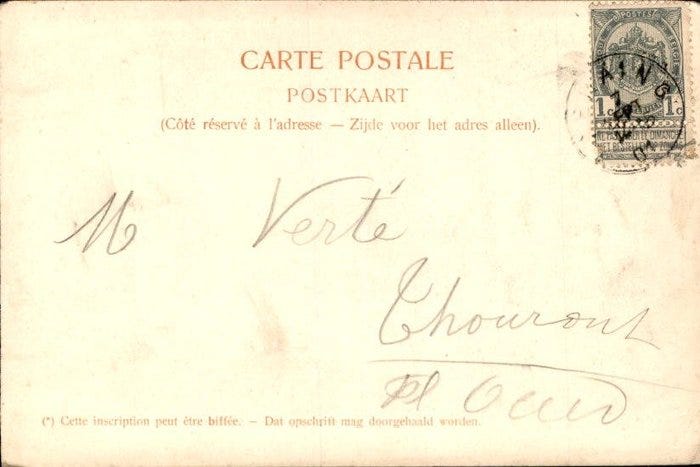 POSTES
CARTE POSTALE
POSTKAART
(Côté réservé à l'adresse — Zijde voor het adres alleen).
1 1c
AING
7
SEPT
01
NE PAS LIVRER LE DIMANCHE
NIET BESTELLEN OP ZONDAG
M Verté
Thourout
(*) Cette inscription peut être biffée. — Dat opschrift mag doorgehaald worden.